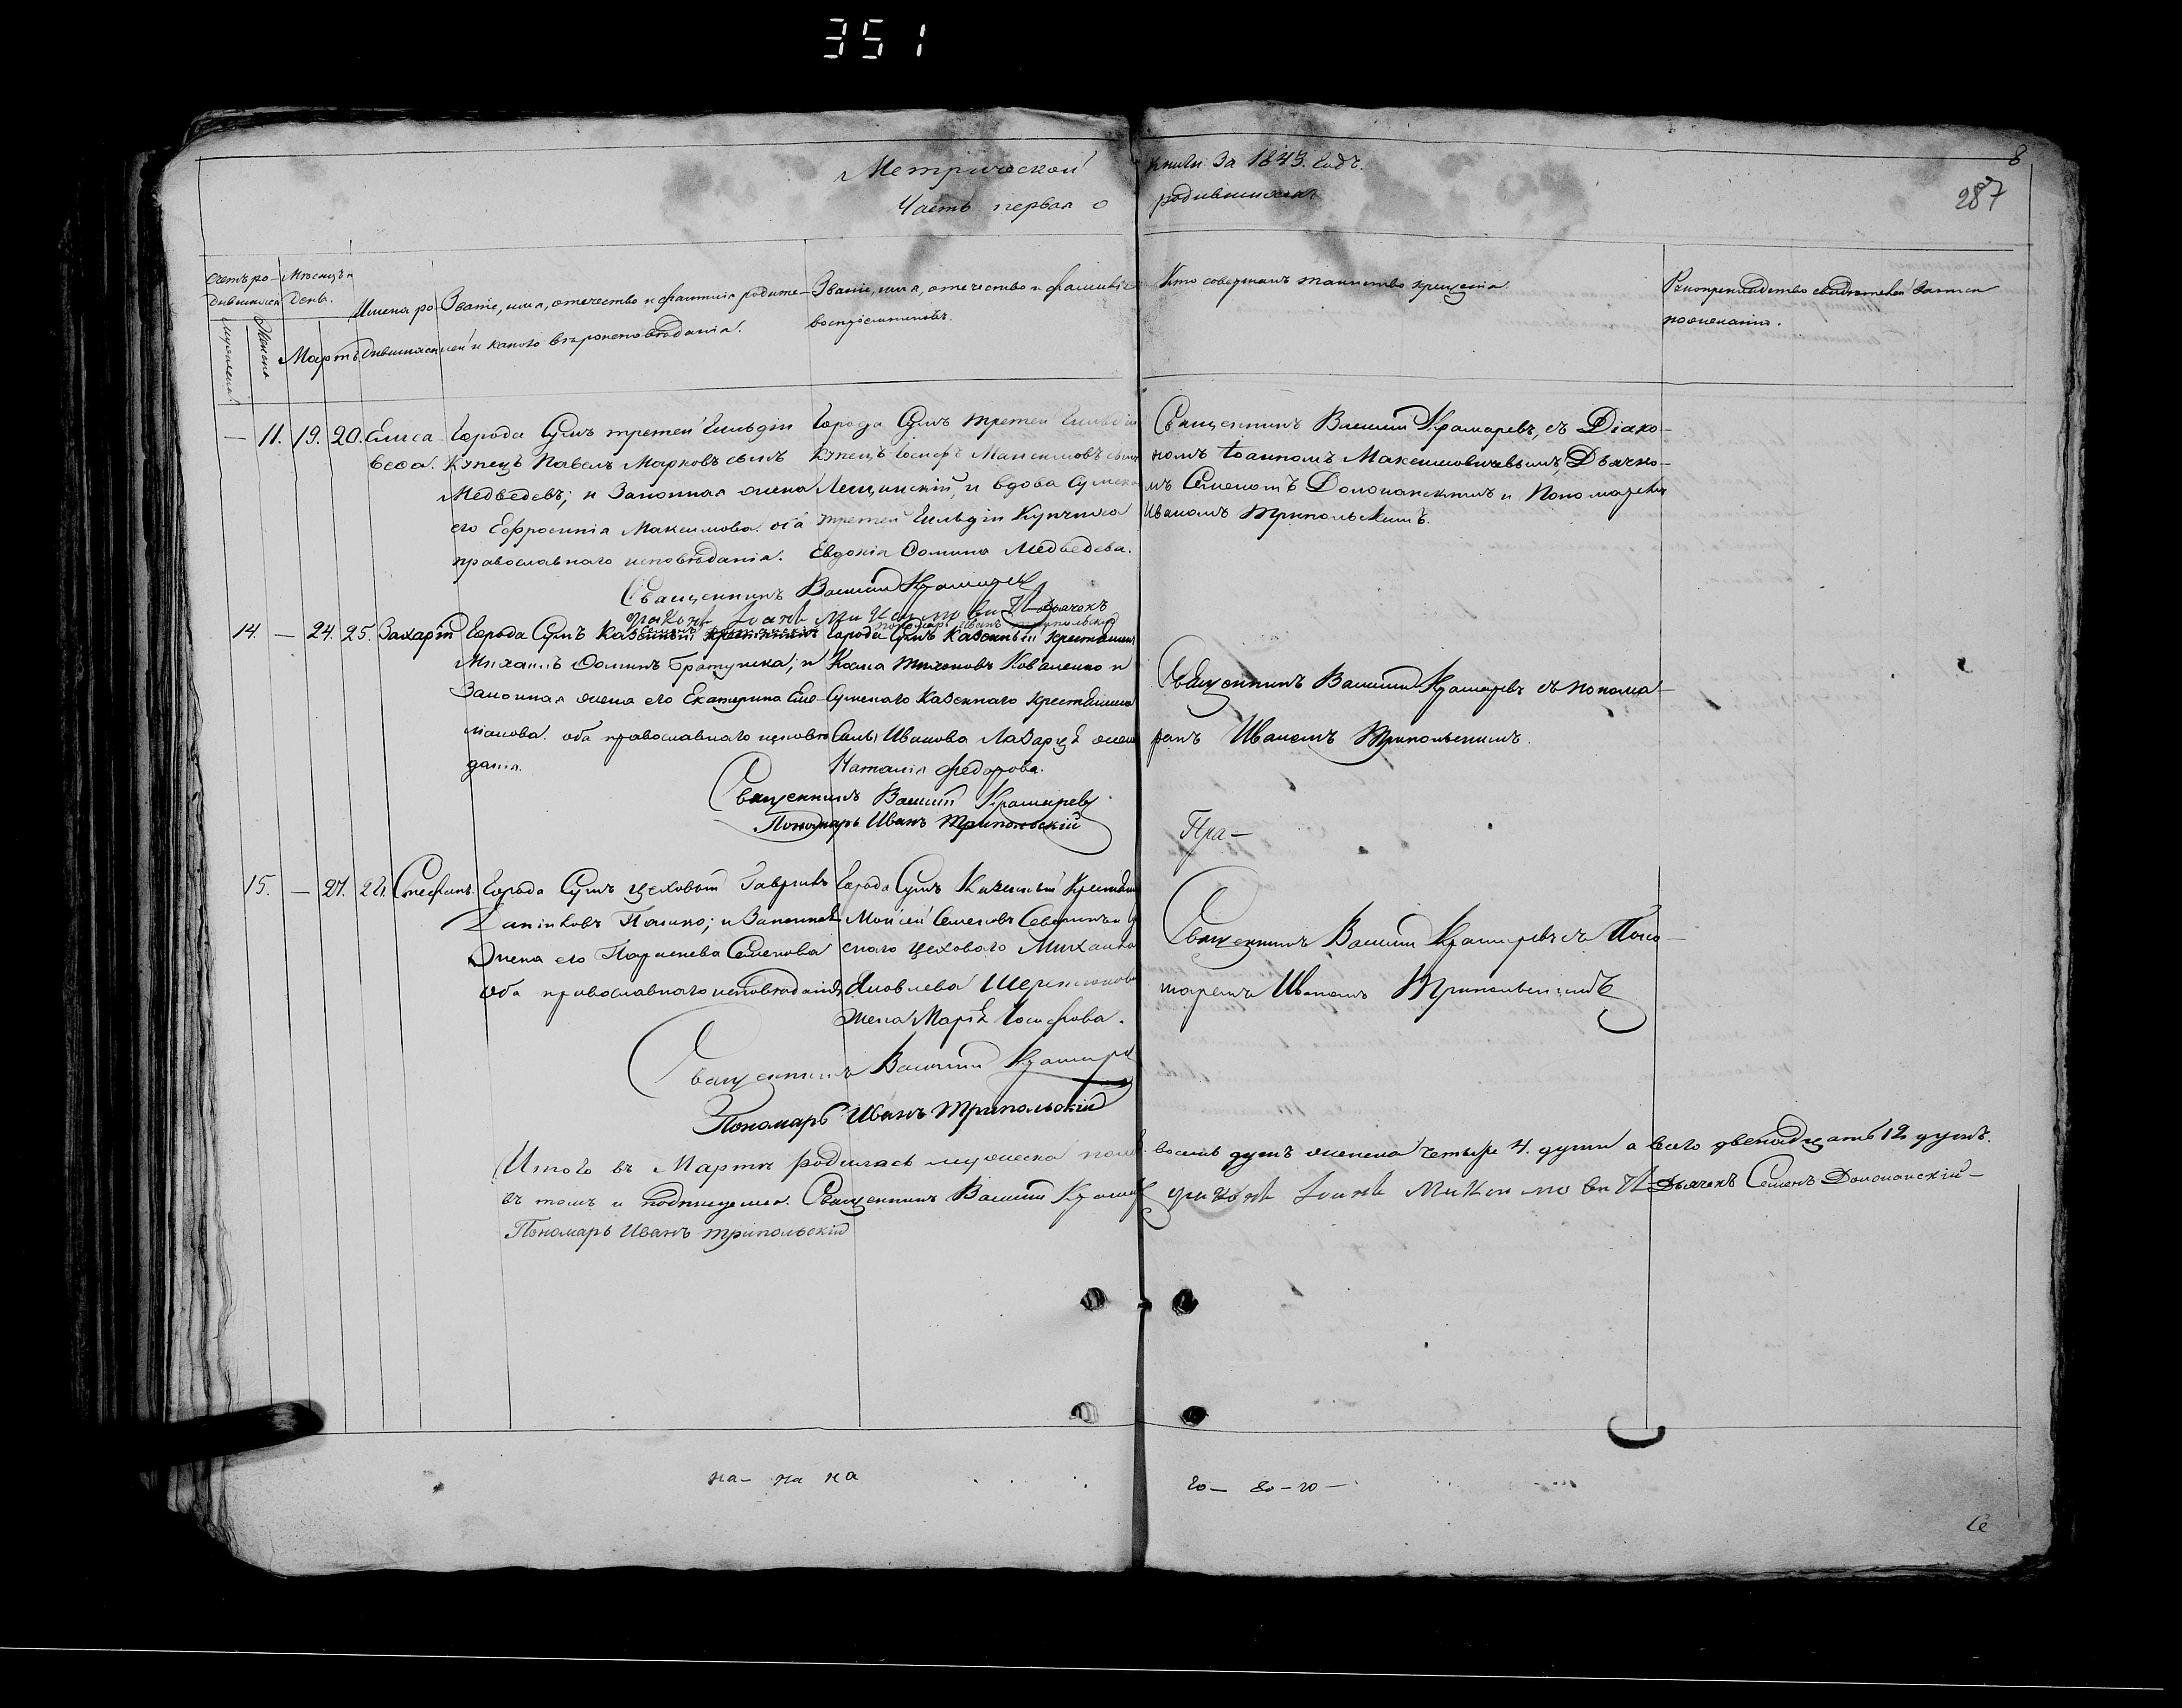 351
Метрической книги за 1843. годъ.
Часть первая о родившихся
8
287
Счетъ родившихся
Мужеска
Женска
Мѣсяцъ и день.
Мартъ
Имена родившихся
Званіе, имя, отечество и фамилія родителей и какого вѣроисповѣданія.
Званіе, имя, отечество и фамилія воспріемниковъ.
Кто совершалъ таинство крещенія
Рукоприкладство свидѣтелей записи по желанію.
— 11. 19. 20. Елисавеѳа.
Города Сумъ третей Гильдіи
Купецъ Павелъ Марковъ сынъ
Медведевъ; и Законная жена
его Ефросинія Максимова. оба
православнаго исповѣданія.
Города Сумъ третей Гильдіи
Купецъ Іосифъ Максимовъ сынъ
Лещинскій, и вдова Сумска
третей Гильдіи Купчиха
Евдокія Ѳомина Медведева.
Священникъ Василій Крамаревъ, съ Діако-
номъ Іоанномъ Максимовичевымъ, Дьячко-
мъ Семеномъ Доломанскимъ и Пономаремъ
Иваномъ Трипольскимъ.
Священникъ Василій Крамаревъ
Діаконъ Іоаннъ Максимовичъ Дьячекъ
Семенъ Доломанскій Пономарь Иванъ Трипольскій
14. — 24. 25. Захарій
Города Сумъ Казенный крестьянинъ
Михаилъ Ѳоминъ Братушка; и
Законная жена его Екатерина Еме-
ліанова. оба православнаго исповѣ-
данія.
Города Сумъ Казенный крестьянинъ
Косма Тихоновъ Коваленко и
Сумскаго Казеннаго крестьянина
Саввы Иванова Лазарца жена
Наталія Федорова.
Священникъ Василій Крамаревъ съ понома-
ремъ Иваномъ Трипольскимъ.
Священникъ Василій Крамаревъ
Пономарь Иванъ Трипольскій
Пра—
15. — 27. 28. Стефанъ.
Города Сумъ цеховый Гавріилъ
Даніиловъ; и Законная
Жена его Параскева Семенова
Оба православнаго исповѣданія
Города Сумъ Казенный Крестьянинъ
Моисей Семеновъ и Сум-
скаго цеховаго Михаила
Яковлева
жена Марѳа Іосифова.
Священникъ Василій Крамаревъ съ Поно-
маремъ Иваномъ Трипольскимъ
Священникъ Василій Крамаревъ
Пономарь Иванъ Трипольскій
Итого въ Мартѣ родилась мужеска пола восемь душъ женска четыре 4. души а всего двенадцать 12 душъ.
въ томъ и подпишемся. Священникъ Василій Крамаревъ Діаконъ Іоаннъ Максимовичъ Дьячекъ Семенъ Доломанскій—
Пономарь Иванъ Трипольскій
на— на на го— го—го—
Се